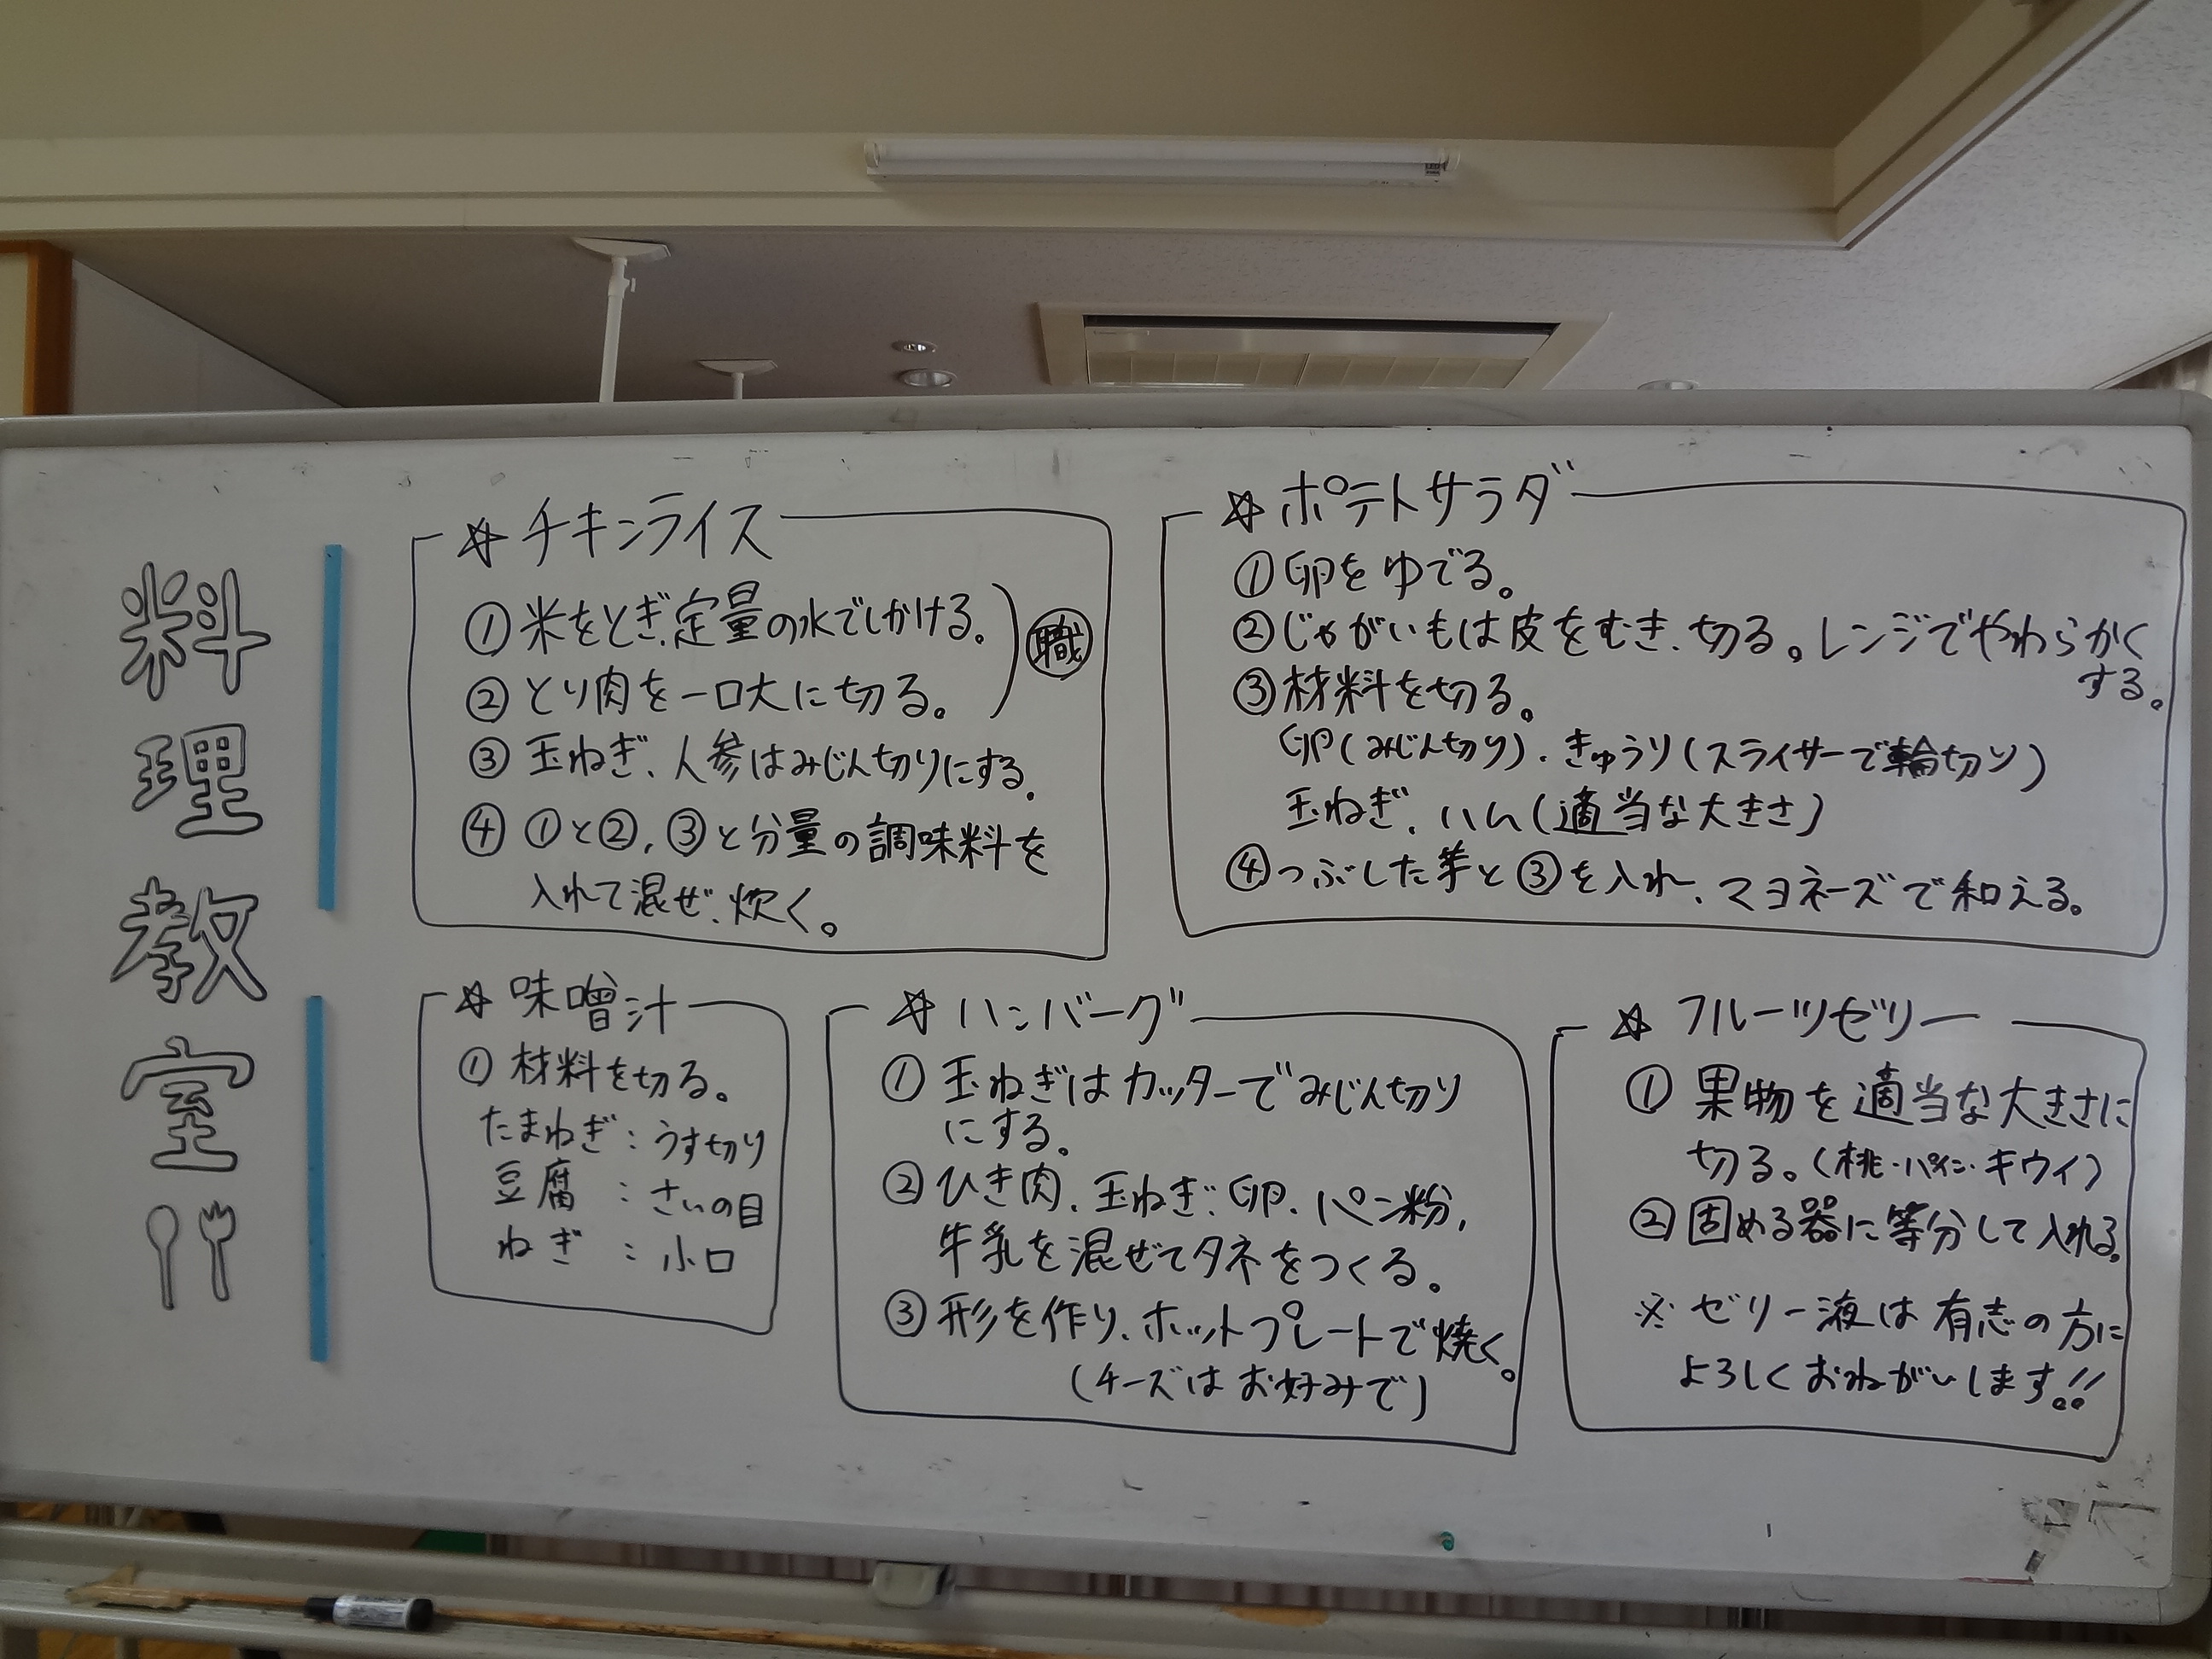 料理教室
☆チキンライス
①米をとぎ、定量の水でしかける。
②とり肉を一口大に切る。
職
③玉ねぎ、人参はみじん切りにする。
④①と②,③と分量の調味料を
入れて混ぜ、炊く。
☆ポテトサラダ
①卵をゆでる。
②じゃがいもは皮をむき、切る。レンジでやわらかく
する。
③材料を切る。
卵(みじん切り)・きゅうり(スライサーで輪切り)
玉ねぎ、ハム(適当な大きさ)
④つぶした芋と③を入れ、マヨネーズで和える。
☆味噌汁
①材料を切る。
たまねぎ:うす切り
豆腐:さいの目
ねぎ:小口
☆ハンバーグ
①玉ねぎはカッターでみじん切り
にする。
②ひき肉、玉ねぎ、卵、パン粉,
牛乳を混ぜてタネをつくる。
③形を作り、ホットプレートで焼く。
(チーズはお好みで)
☆フルーツゼリー
①果物を適当な大きさに
切る。(桃・パイン・キウイ)
②固める器に等分して入れる。
※ゼリー液は有志の方に
よろしくおねがいします!!